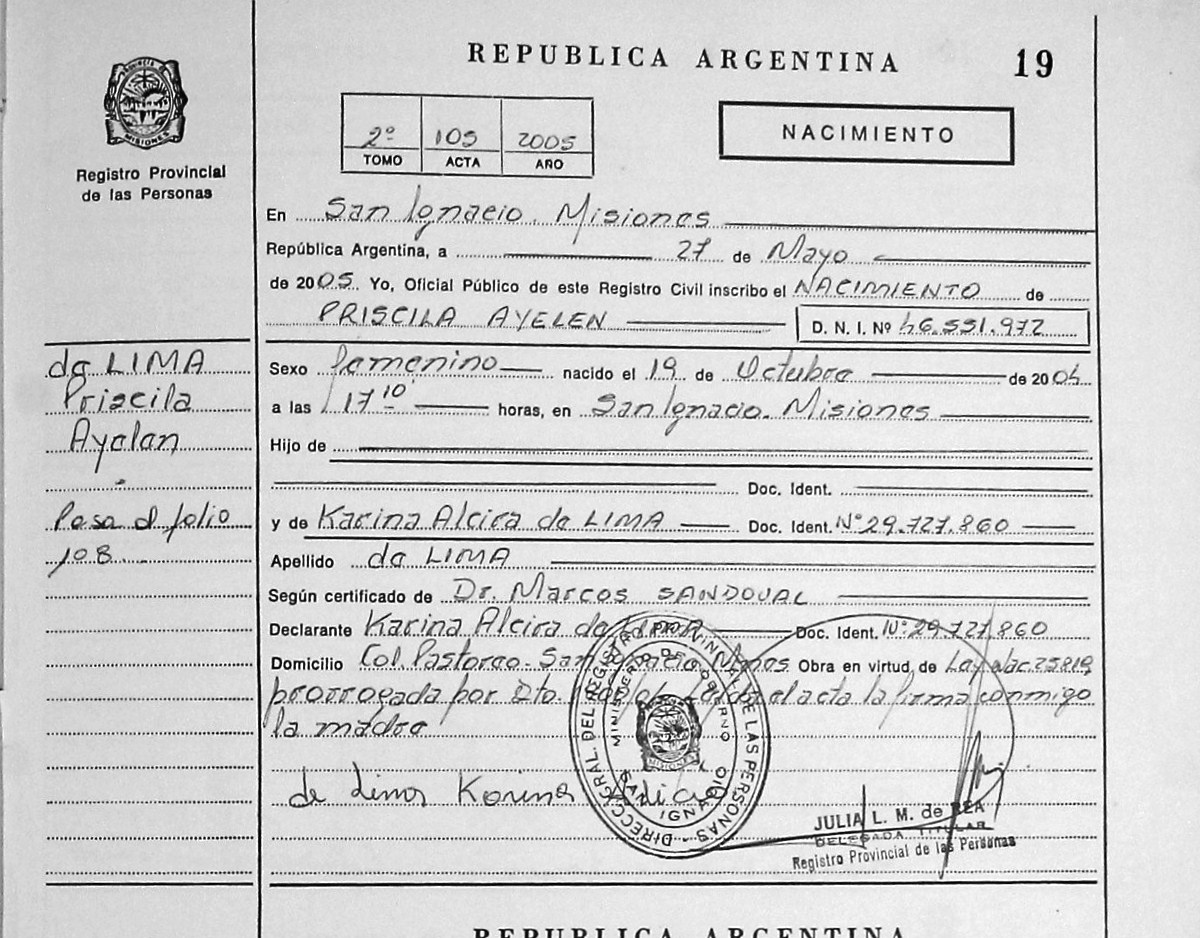 REPUBLICA ARGENTINA 19
PROVINCIA DE MISIONES
Registro Provincial
de las Personas
2º 105 2005
TOMO ACTA AÑO
NACIMIENTO
En San Ignacio. Misiones
República Argentina, a 27 de Mayo
de 2005. Yo, Oficial Público de este Registro Civil inscribo el NACIMIENTO de
PRISCILA AYELEN D. N. I. Nº 46.551.972
da LIMA
Priscila
Ayelen
Pasa al folio
108
Sexo femenino nacido el 19 de Octubre de 2004
a las 17 10 horas, en San Ignacio. Misiones
Hijo de
Doc. Ident.
y de Karina Alcira da LIMA Doc. Ident. Nº 29.727.860
Apellido da LIMA
Según certificado de Dr. Marcos SANDOVAL
Declarante Karina Alcira da LIMA Doc. Ident. Nº 29.727.860
Domicilio Col. Pastoreo - San Ignacio Mnes Obra en virtud de Ley Nac. 25819,
prorrogada por Dto. el acta la firma conmigo
la madre
de Lima Karina Alicia
DIRECC. GRAL. DEL REGISTRO PROVINCIAL DE LAS PERSONAS
MINISTERIO DE GOBIERNO
MISIONES
SAN IGNACIO
JULIA L. M. de REA
DELEGADA TITULAR
Registro Provincial de las Personas
REPUBLICA ARGENTINA